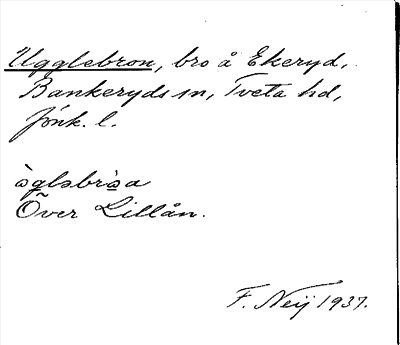 Ugglebron, bro å Ekeryd,
Bankeryds sn, Tveta hd,
Jönk. l.
ògləbròa
Över Lillån.
F. Neij 1937.